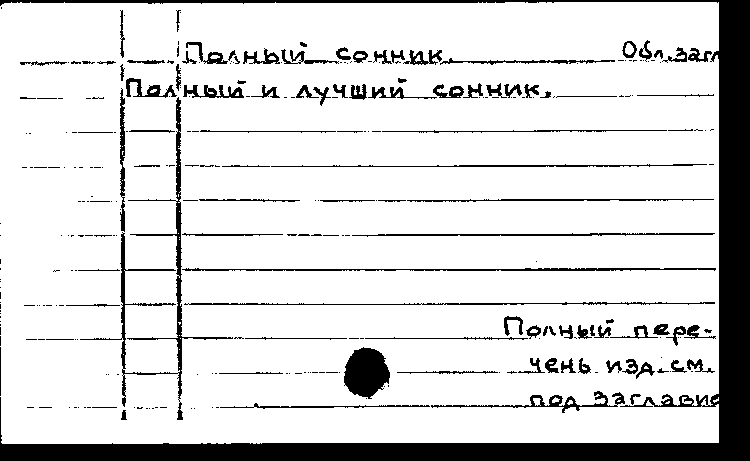 Полный сонник. Обл. загл
Полный и лучший сонник.
Полный пере-
чень изд. см.
под заглавие